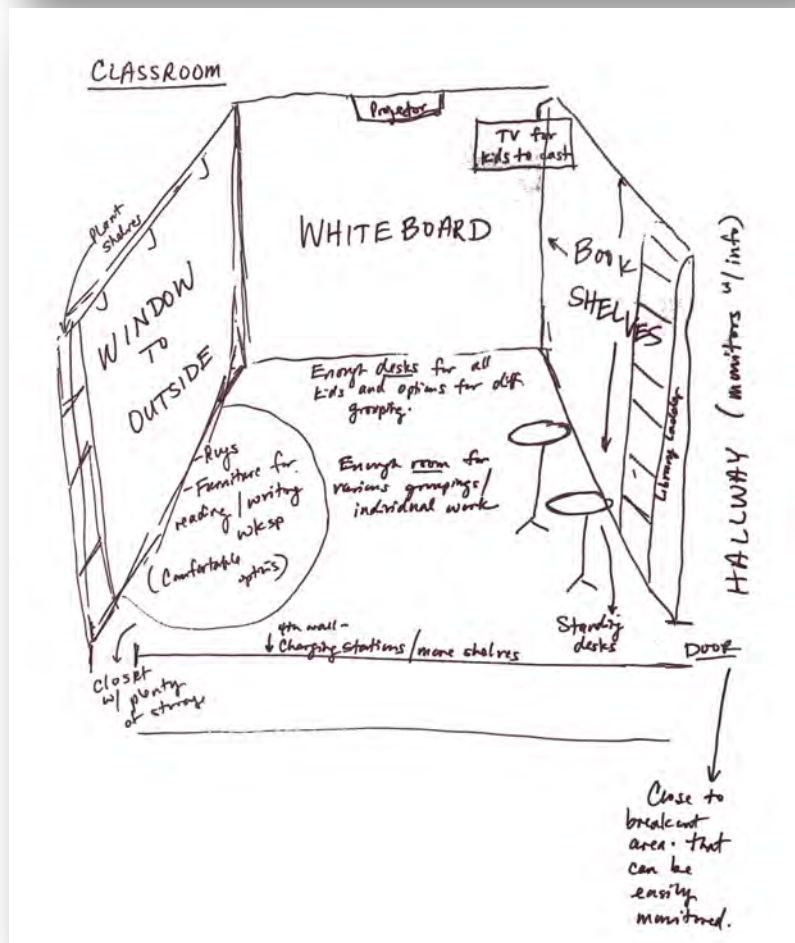 CLASSROOM
Projector
TV for
kids to cast
Plant
shelves
WHITEBOARD
WINDOW
TO
OUTSIDE
BOOK
SHELVES
Library Ladder
HALLWAY (monitors w/ info)
Enough desks for all
kids and options for diff.
grouping.
Enough room for
various groupings/
individual work
-Rugs
-Furniture for
reading/writing
wksp
(Comfortable
options)
Standing
desks
4th wall-
Charging stations/more shelves
DOOR
Closet
w/ plenty
of storage
Close to
breakout
area that
can be
easily
monitored.